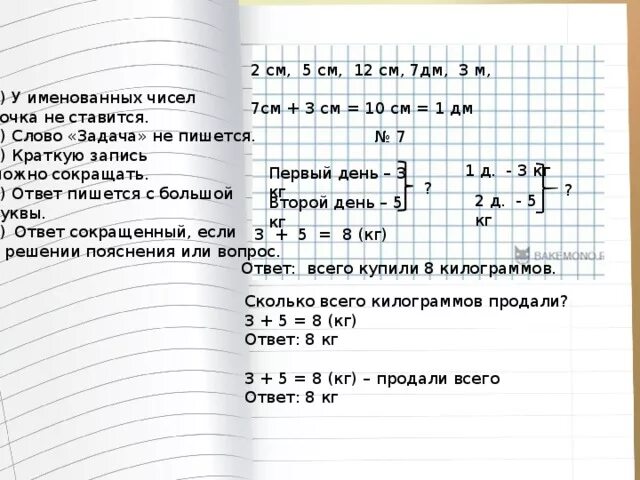 ) У именованных чисел
очка не ставится.
) Слово «Задача» не пишется.
) Краткую запись
можно сокращать.
) Ответ пишется с большой
уквы.
) Ответ сокращенный, если
решении пояснения или вопрос.
2 см, 5 см, 12 см, 7дм, 3 м,
7см + 3 см = 10 см = 1 дм
№ 7
Первый день – 3
кг
Второй день – 5
кг
?
1 д. - 3 кг
2 д. - 5
кг
?
3 + 5 = 8 (кг)
BAKEMONO.R
Ответ: всего купили 8 килограммов.
Сколько всего килограммов продали?
3 + 5 = 8 (кг)
Ответ: 8 кг
3 + 5 = 8 (кг) – продали всего
Ответ: 8 кг